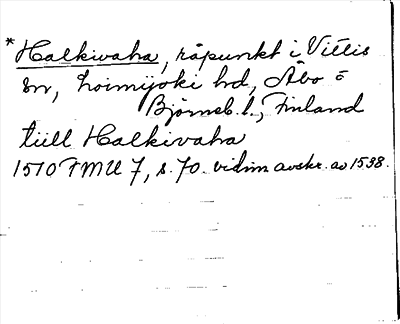 *Halkivaha, råpunkt i Vittis
sn, Loimijoki hd, Åbo o
Björneb. l., Finland
tiill Halkivaha
1510 FMU 7, s. 70. vidim avskr. av 1538.